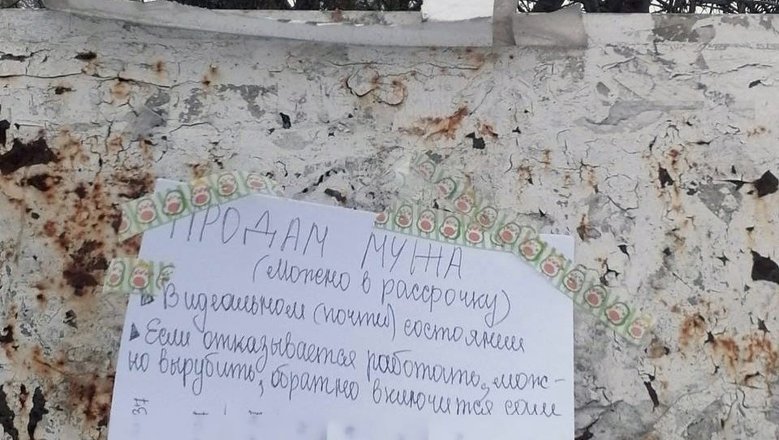 ПРОДАМ МУЖА
(можно в рассрочку)
▶ В идеальном (почти) состоянии
▶ Если отказывается работать, мож-
но вырубить, обратно включится сам